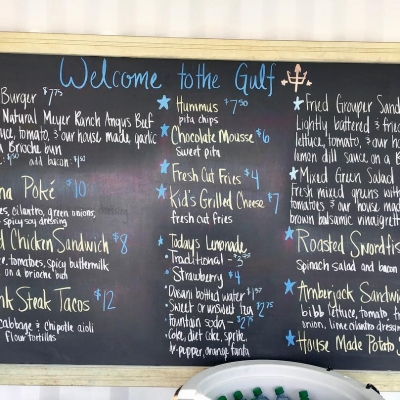 Welcome to the Gulf
Burger $7.75
Natural Meyer Ranch Angus Beef
tomato, & our house made garlic
a Brioche bun
add bacon:
Poké $10
cilantro, green onions,
spicy soy dressing
Chicken Sandwich $8
tomatoes, spicy buttermilk
on a brioche bun
Steak Tacos $12
Cabbage & chipotle aioli
flour tortillas
Hummus $7.50
pita chips
Chocolate Mousse $6
sweet pita
Fresh Cut Fries $4
Kid's Grilled Cheese $7
fresh cut fries
Today's Lemonade
• Traditional -
• Strawberry $4
Dasani bottled water
• Sweet or unsweet tea $2.75
Fountain soda - $2.75
• Coke, diet coke, sprite,
dr. pepper, orange fanta
Fried Grouper Sand
Lightly battered & fried
lettuce, tomato, & our ho
lemon dill sauce, on a B
Mixed Green Salad
Fresh mixed greens with
tomatoes & our house mad
brown balsamic vinaigrett
Roasted Swordfis
Spinach salad and bacon
Amberjack Sandwi
bibb lettuce, tomato,
onion, lime cilantro dressi
House Made Potato